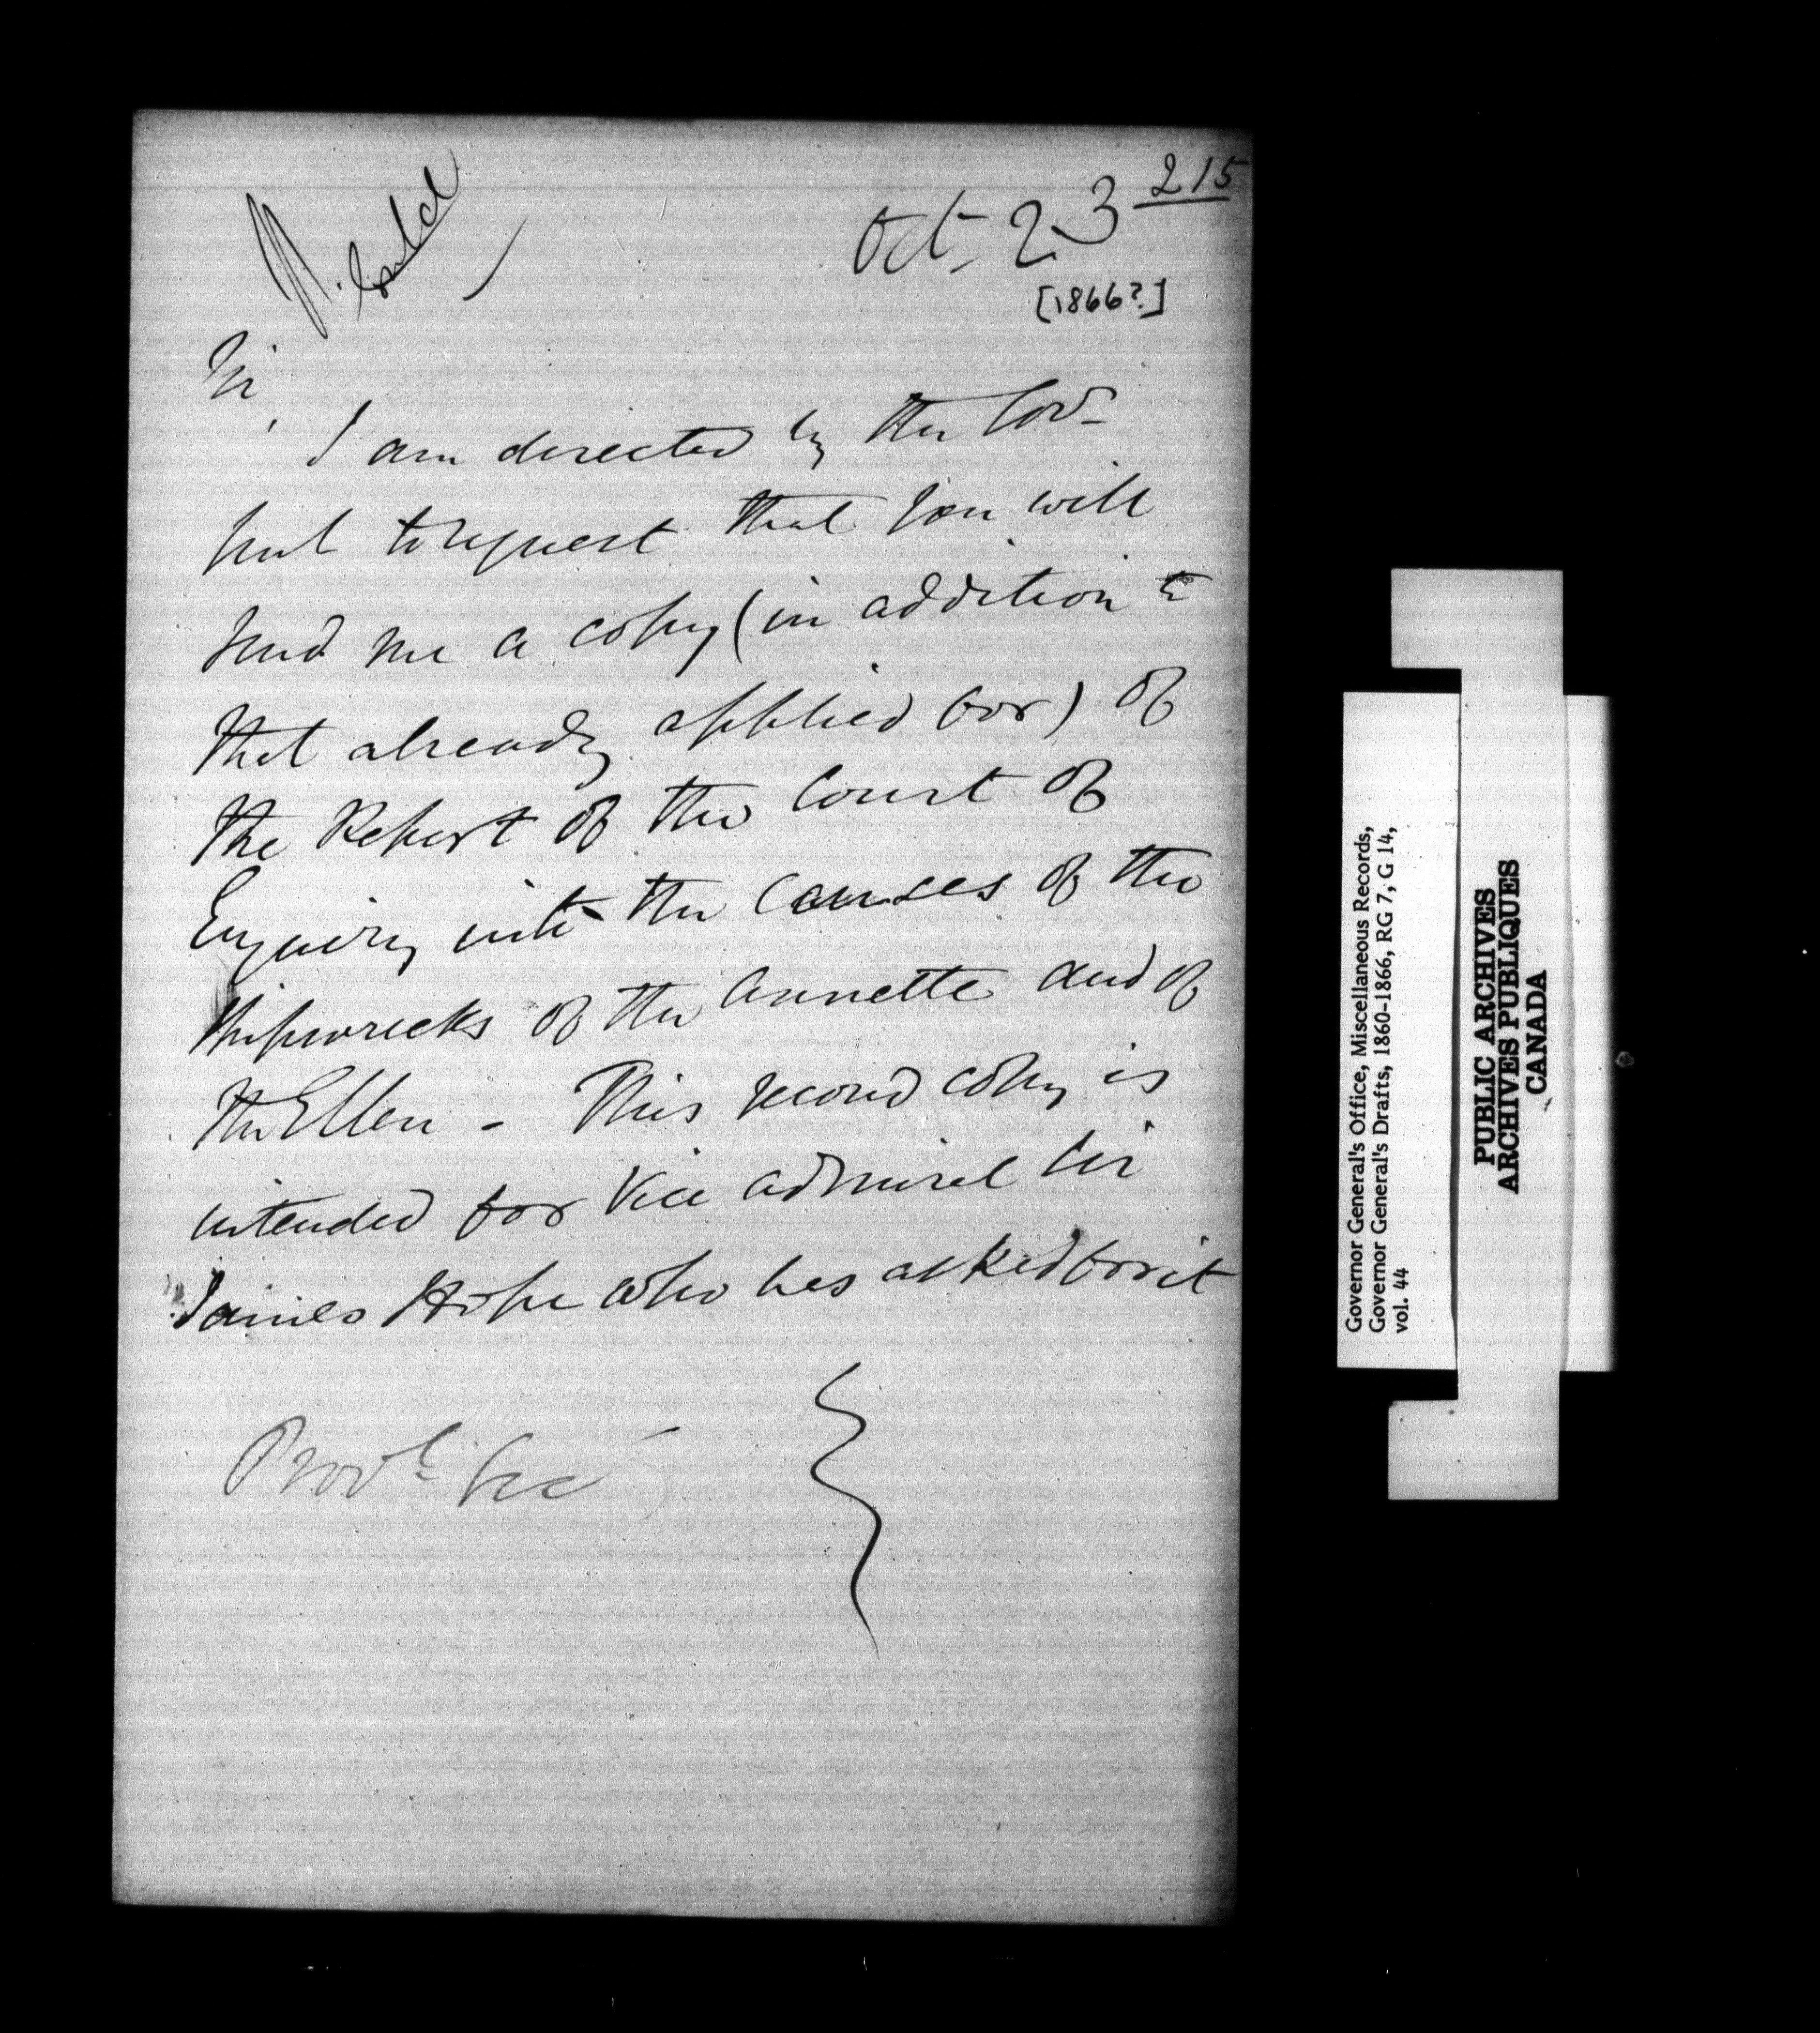 215
Oct. 23
[1866?]
Sir,
I am directed by the Gov-
to request that you will
send me a copy (in addition to
that already applied for) of
the Report of the Court of
Enquiry into the Causes of the
Shipwrecks of the Annette and of
the Ellen - This second copy is
intended for Vice Admiral Sir
James Hope who has asked for it
Provl Sec
Governor General's Office, Miscellaneous Records,
Governor General's Drafts, 1860-1866, RG 7, G 14,
vol. 44
PUBLIC ARCHIVES
ARCHIVES PUBLIQUES
CANADA